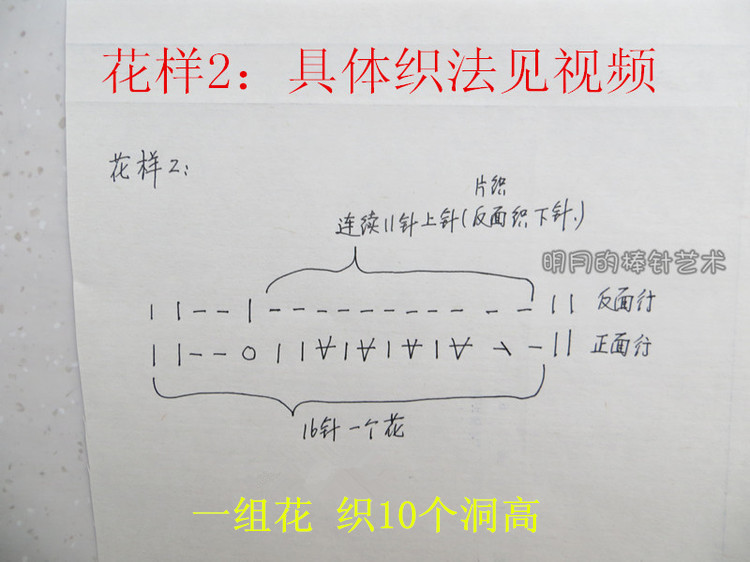 花样2：具体织法见视频
花样2:
片织
连续11针上针(反面织下针.)
明月的棒针艺术
||--|-----------|| 反面行
||--O||∀|∀|∀|∀\-|| 正面行
16针一个花
一组花 织10个洞高